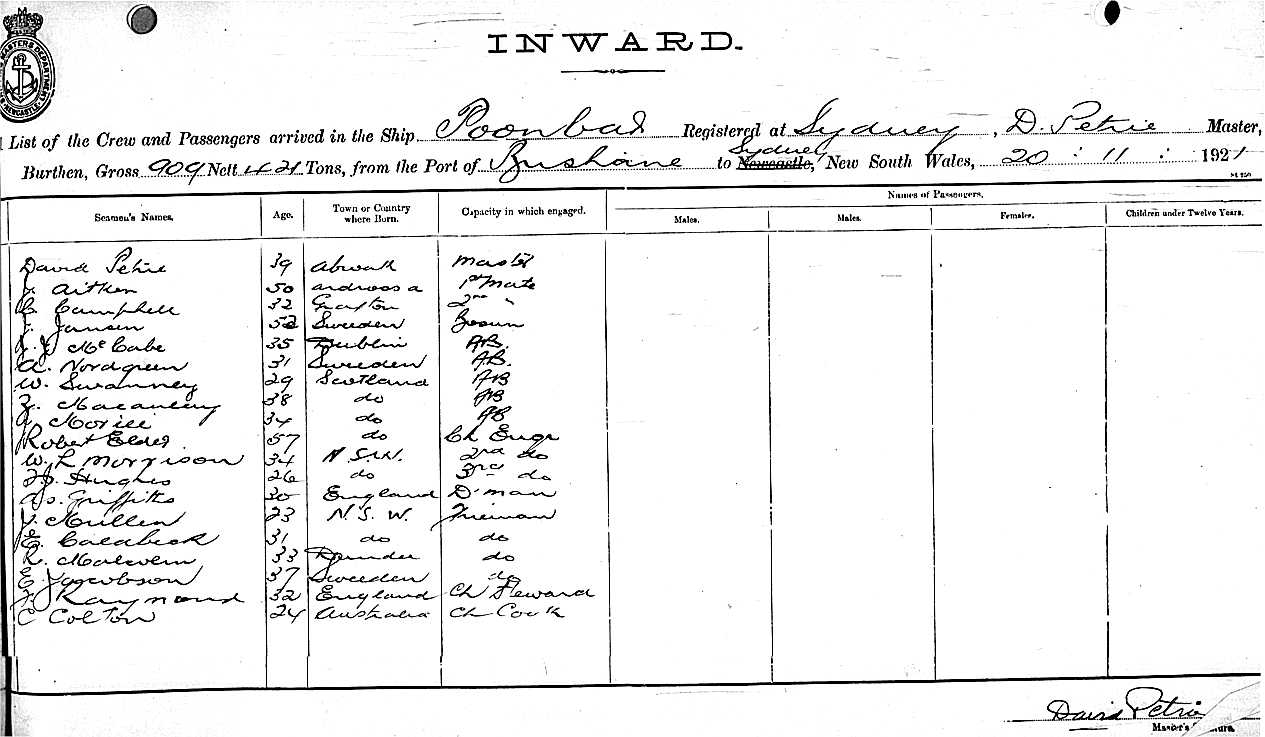 MASTERS DEPARTMENT NEWCASTLE
INWARD.
List of the Crew and Passengers arrived in the Ship Poonbar Registered at Sydney, D. Petrie Master,
Sydney
Burthen, Gross 909 Nett 421 Tons, from the Port of Brisbane to Newcastle, New South Wales, 20 : 11 : 1921
Names of Passengers.
Seamen's Names. Age. Town or Country where Born. Capacity in which engaged. Males. Males. Females. Children under Twelve Years.
David Petrie 39 Master
J. Aitken 50 1st Mate
C. Campbell 32 Grafton 2nd "
J. Jansen 52 Sweeden Bosun
J. J. McCabe 35 Dublin AB.
A. Nordgreen 31 Sweeden AB.
W. Swanney 29 Scotland AB
Macauley 38 do AB
34 do AB
Robert Elder 57 do Ch Engr
W. L Morrison 34 N.S.W. 2nd do
Hughes 26 do 3rd do
Griffiths 30 England D'man
J. Mullen 23 N.S.W. Fireman
E. Caldbeck 31 do do
R. Malcolm 33 Dundee do
E. Jacobson 37 Sweeden do
F. Raymond 32 England Ch Steward
C Colton 24 Australia Ch Cook
David Petrie
Master's Signature.